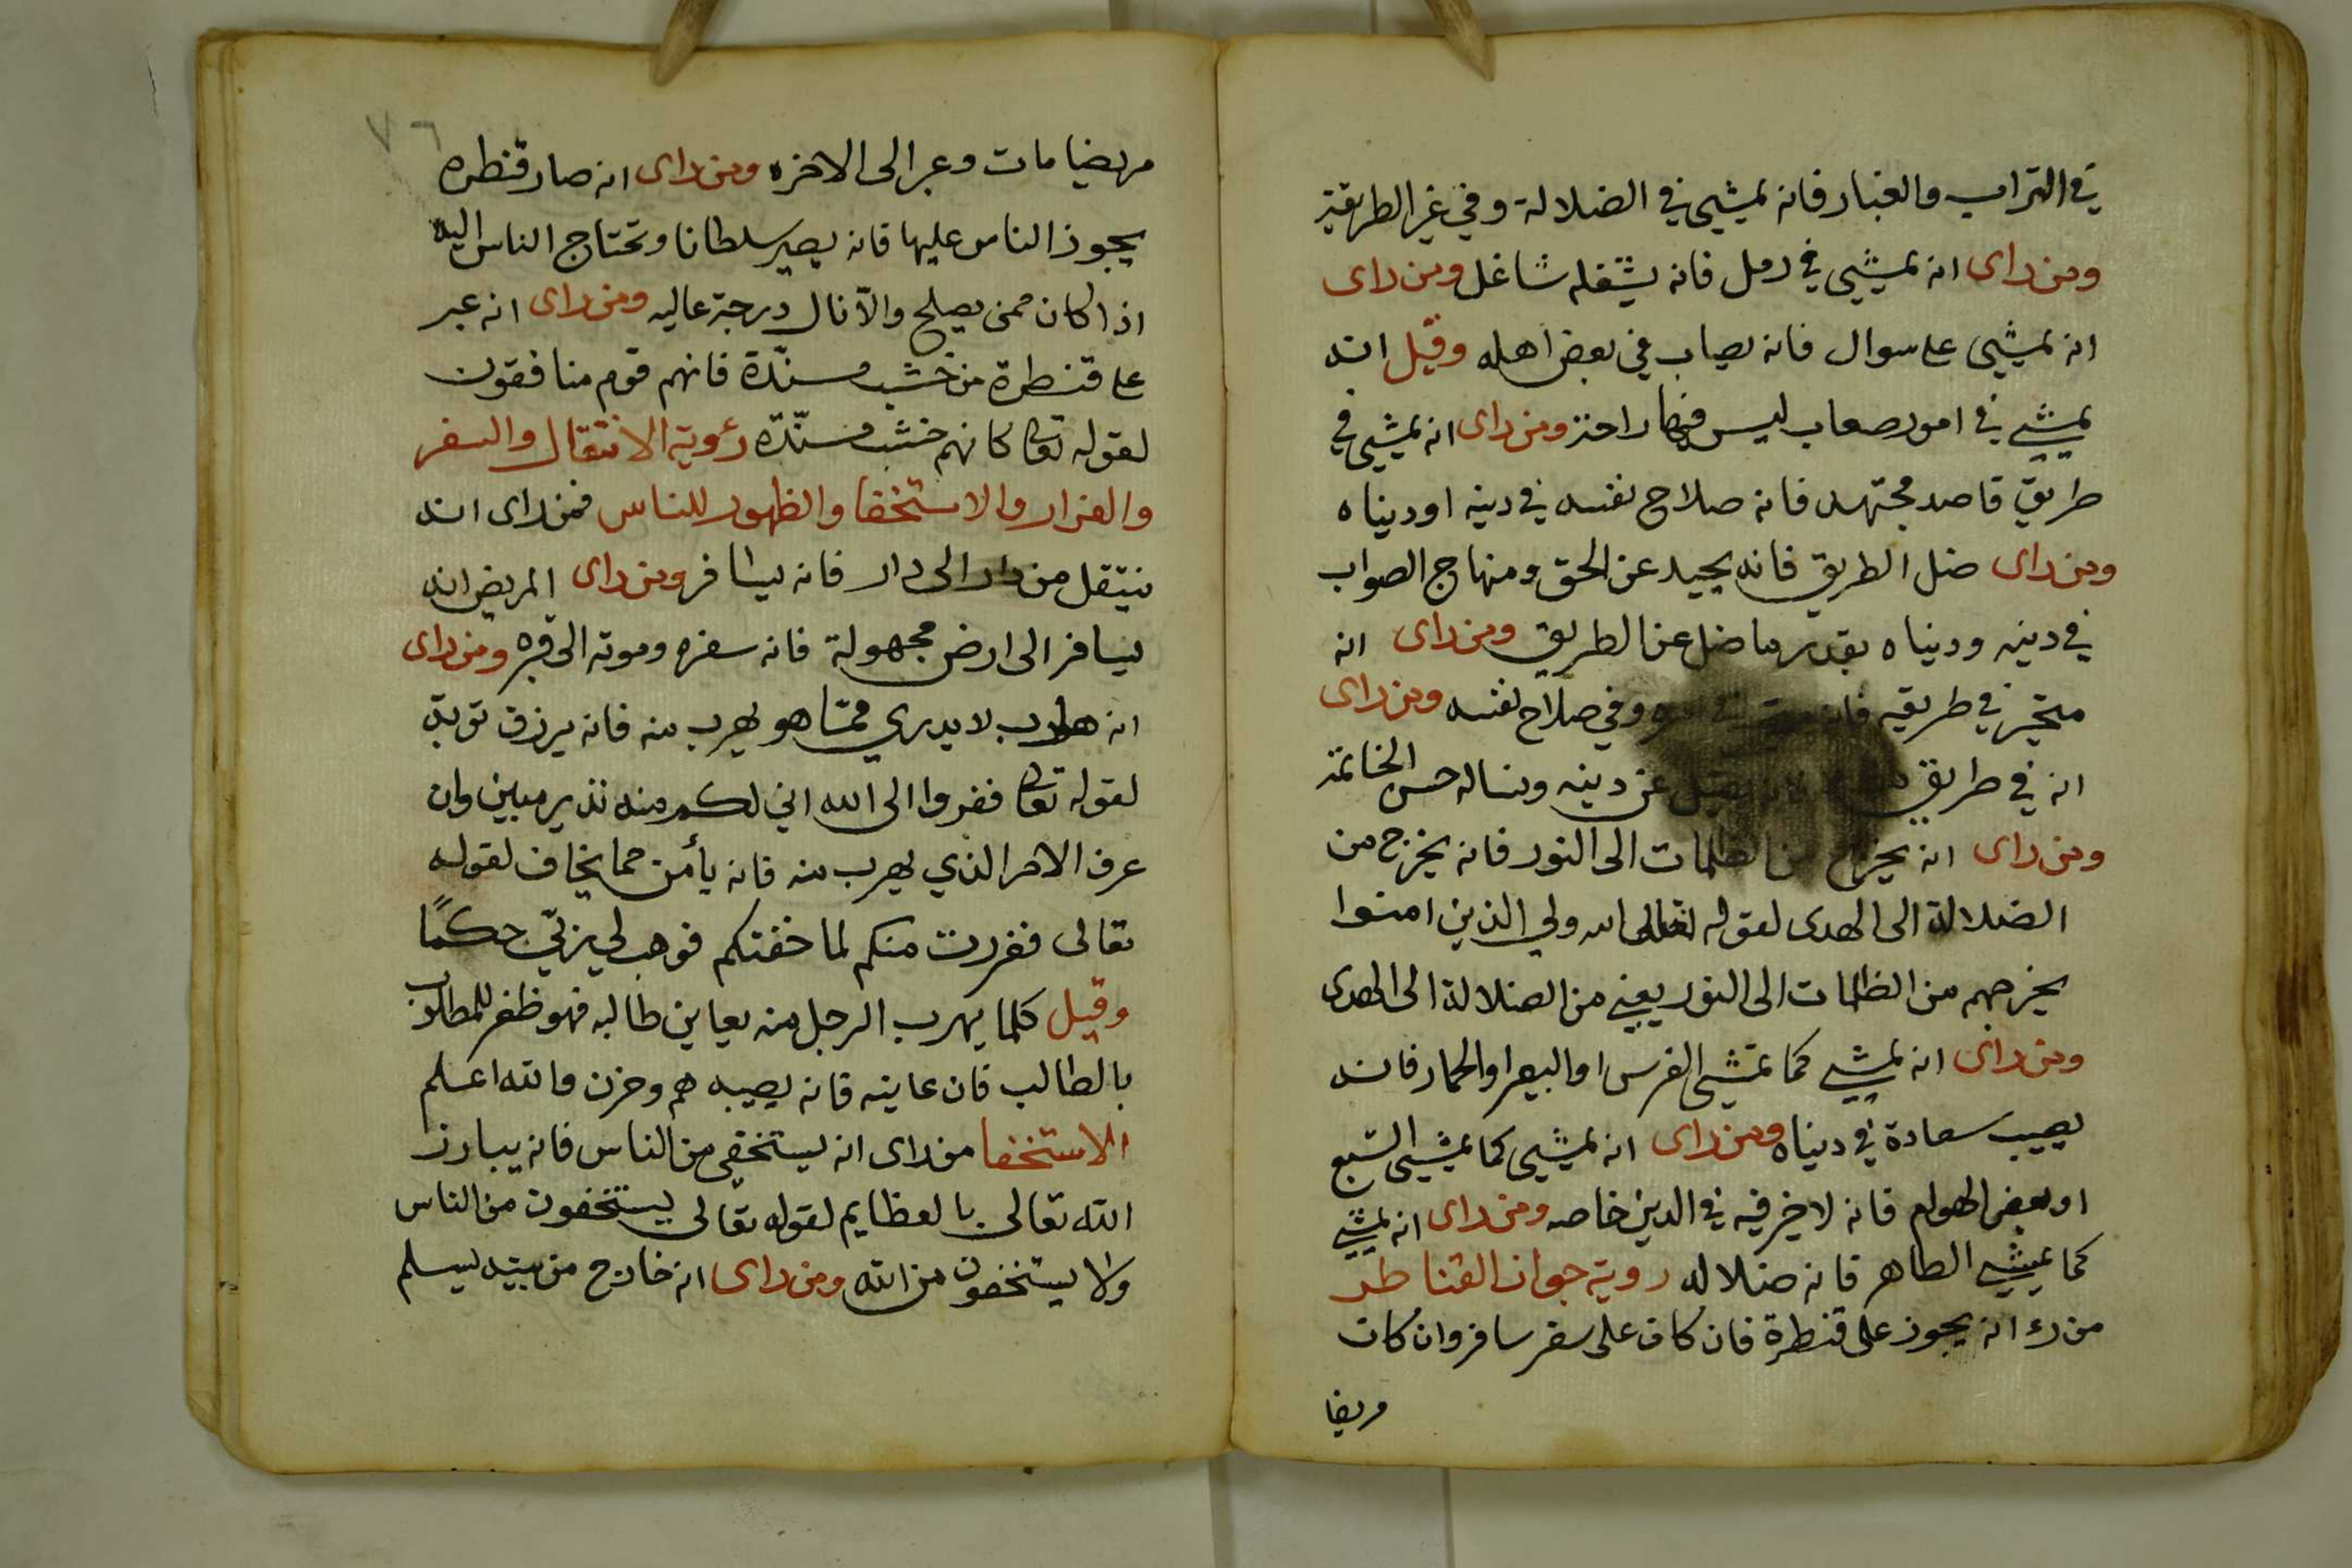 في التراب والغبار فانه يمشي في الضلالة وفي غير الطريقة
ومن راى انه يمشي في رمل فانه يشغله شاغل ومن راى
انه يمشي على سوال فانه يصاب في بعض اهله وقيل انه
يمشي في امور صعاب ليس فيها راحة ومن راى انه يمشي في
طريق قاصد مجتهد فانه صلاح نفسه في دينه او دنياه
ومن راى ضل الطريق فانه يحيد عن الحق ومنهاج الصواب
في دينه ودنياه بقدر ما ضل عن الطريق ومن راى انه
متحير في طريقه وفي صلاح نفسه ومن راى
انه في طريق عن دينه ونساله حسن الخاتمة
ومن راى انه يخرج من الظلمات الى النور فانه يخرج من
الضلالة الى الهدى لقوله تعالى الله ولي الذين امنوا
يخرجهم من الظلمات الى النور يعني من الضلالة الى الهدى
ومن راى انه يمشي كما تمشي الفرس او البعير او الحمار فانه
يصيب سعادة في دنياه ومن راى انه يمشي كما يمشي السبع
او بعض الهوام فانه لا خير فيه في الدين خاصه ومن راى انه يمشي
كما يمشي الطاهر فانه ضلاله روية جواز القناطر
من رء انه يجوز على قنطرة فان كان على سفر سافر وان كان
مريضا
٧٦
مريضا مات وعبر الى الاخره ومن راى انه صار قنطره
يجوز الناس عليها فانه يصير سلطانا وتحتاج الناس اليه
اذا كان ممن يصلح والّا نال درجة عاليه ومن راى انه عبر
على قنطرة من خشب مسنّدة فانهم قوم منافقون
لقوله تعالى كانهم خشب مسنّدة رءوية الانتقال والسفر
والفرار والاستخفا والظهور للناس فمن راى انه
ينتقل من دار الى دار فانه يسافر ومن راى المريض انه
يسافر الى ارض مجهولة فانه سفره وموته الى قبره ومن راى
انه هارب لا يدري ممّا هو يهرب منه فانه يرزق توبة
لقوله تعالى ففروا الى الله اني لكم منه نذير مبين وان
عرف الامر الذي يهرب منه فانه يأمن مما يخاف لقوله
تعالى ففررت منكم لما خفتكم فوهب لي ربّي حكمًا
وقيل كلما يهرب الرجل منه يعاين طالبه فهو ظفر للمطلوب
بالطالب فان عاينه فانه يصيبه هم وحزن والله اعلم
الاستخفا من راى انه يستخفي من الناس فانه يبارز
الله تعالى بالعظايم لقوله تعالى يستخفون من الناس
ولا يستخفون من الله ومن راى انه خارج من بيته ليسلم